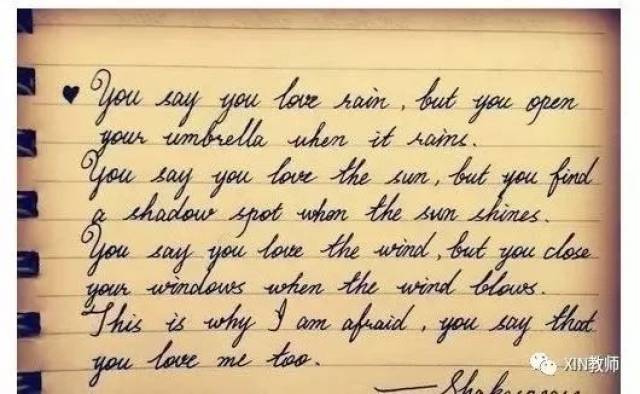 ♥ You say you love rain, but you open
your umbrella when it rains.
You say you love the sun, but you find
a shadow spot when the sun shines.
You say you love the wind, but you close
your windows when the wind blows.
This is why I am afraid, you say that
you love me too.
XIN教师